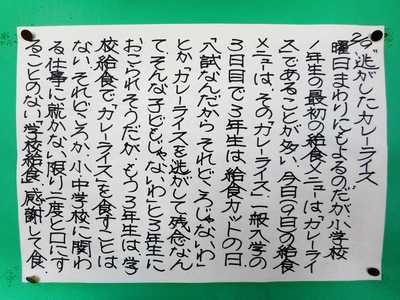 29"逃がしたカレーライス
曜日まわりにもよるのだが小学校
1年生の最初の給食メニューは、「カレーライ
ス」であることが多い。今日(9日)の給食
メニューは、その「カレーライス」。一般入学の
3日目で3年生は、給食カットの日。
「入試なんだから、それどころじゃないわ」
とか「カレーライスを逃がして残念なん
て、そんな子どもじゃないわ」と3年生に
おこられそうだが、もう3年生は、学
校給食で「カレーライス」を食すことは
ない。それどころか、小中学校に関わ
る仕事に就かない限り一度と口にす
ることのない「学校給食」。感謝して食